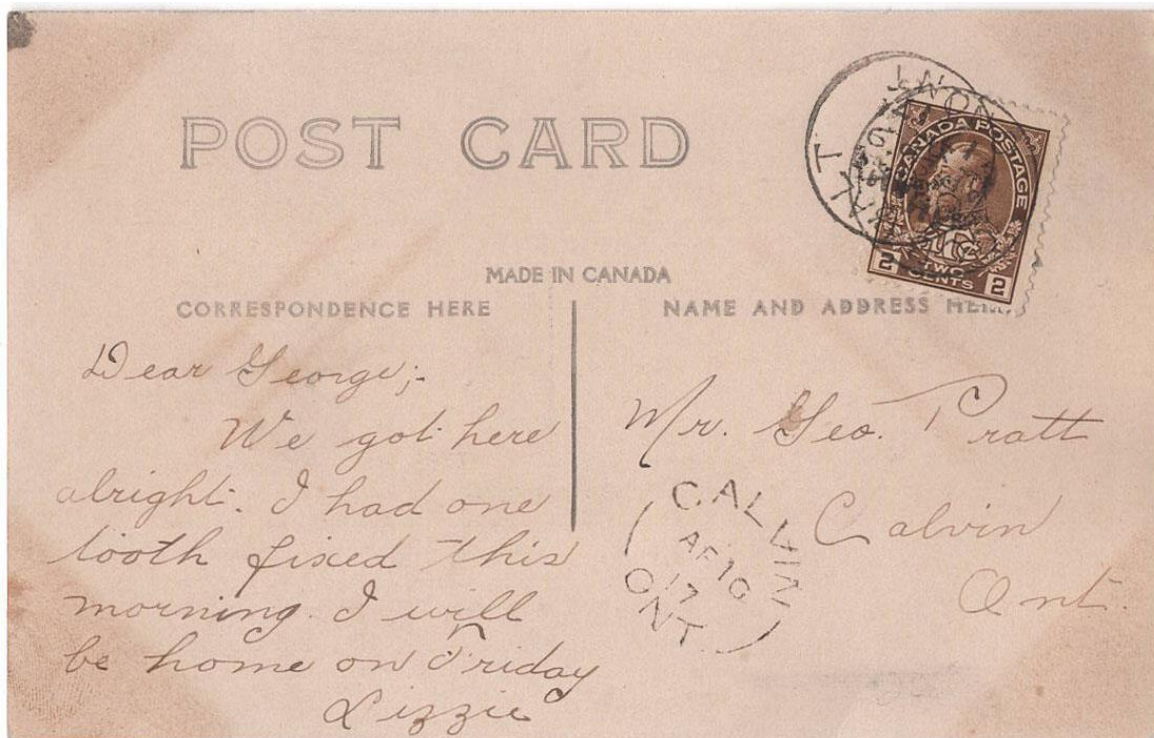 POST CARD
CANADA POSTAGE
2 TWO CENTS 2
MADE IN CANADA
CORRESPONDENCE HERE
NAME AND ADDRESS HERE
Dear George;-
We got here
alright. I had one
tooth fixed this
morning. I will
be home on Friday
Lizzie
Mr. Geo. Pratt
Calvin
Ont.
CALVIN
17
ONT.